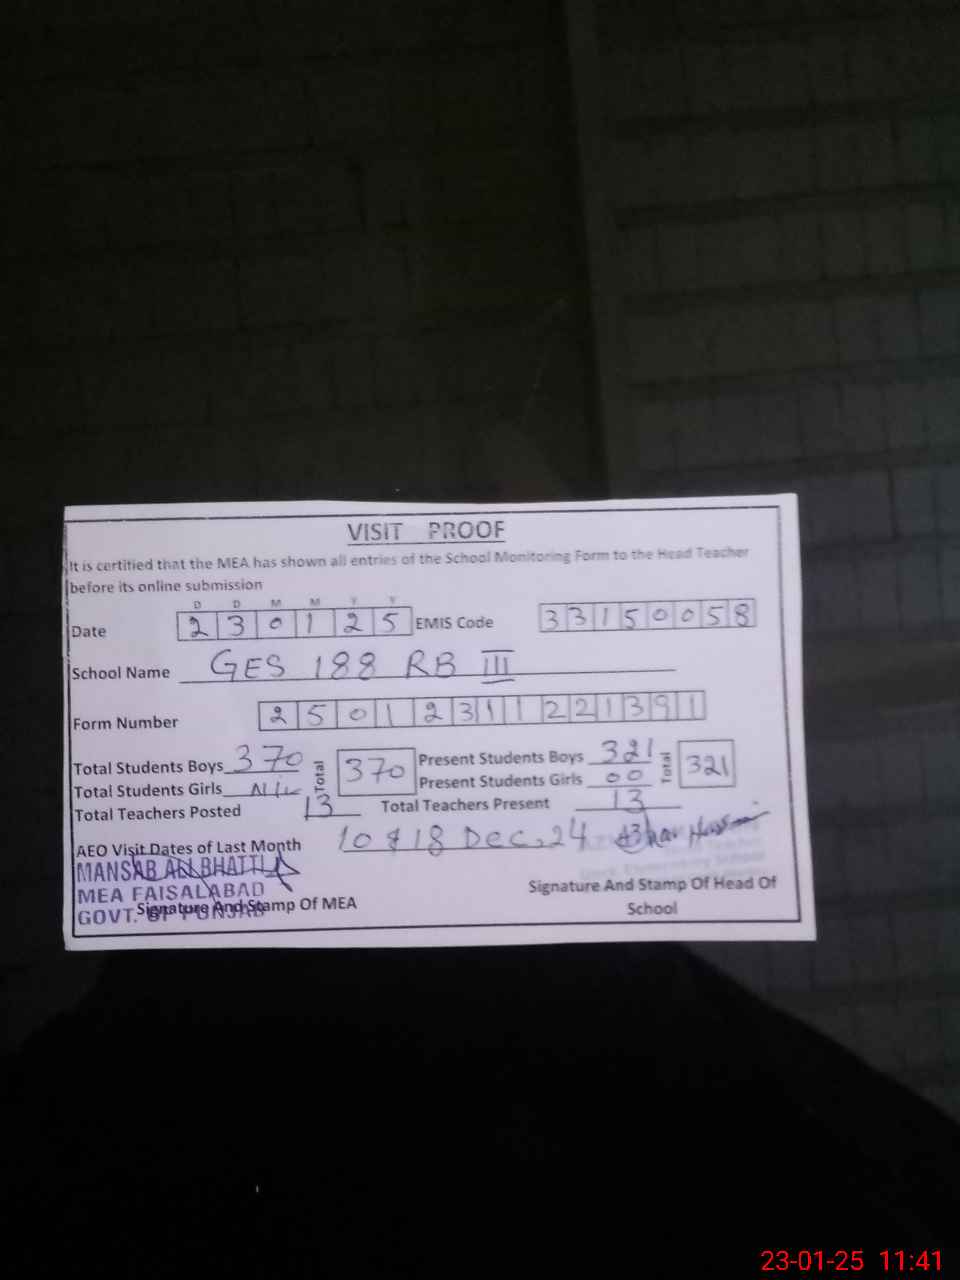 VISIT PROOF
It is certified that the MEA has shown all entries of the School Monitoring Form to the Head Teacher
before its online submission
D D M M Y Y
Date 2 3 0 1 2 5 EMIS Code 3 3 1 5 0 0 5 8
School Name GES 188 RB III
Form Number 2 5 0 1 2 3 1 1 2 2 1 3 9 1
Total Students Boys 370 Total 370 Present Students Boys 321 Total 321
Total Students Girls Nil Present Students Girls 00
Total Teachers Posted 13 Total Teachers Present 13
AEO Visit Dates of Last Month 10 & 18 Dec. 24
MANSAB ALI BHATTI
MEA FAISALABAD
GOVT. OF PUNJAB
Signature And Stamp Of MEA
Signature And Stamp Of Head Of
School
23-01-25 11:41